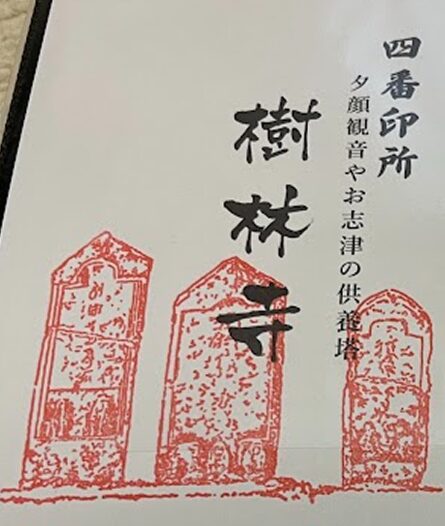 四番印所
夕顔観音やお志津の供養塔
樹林寺